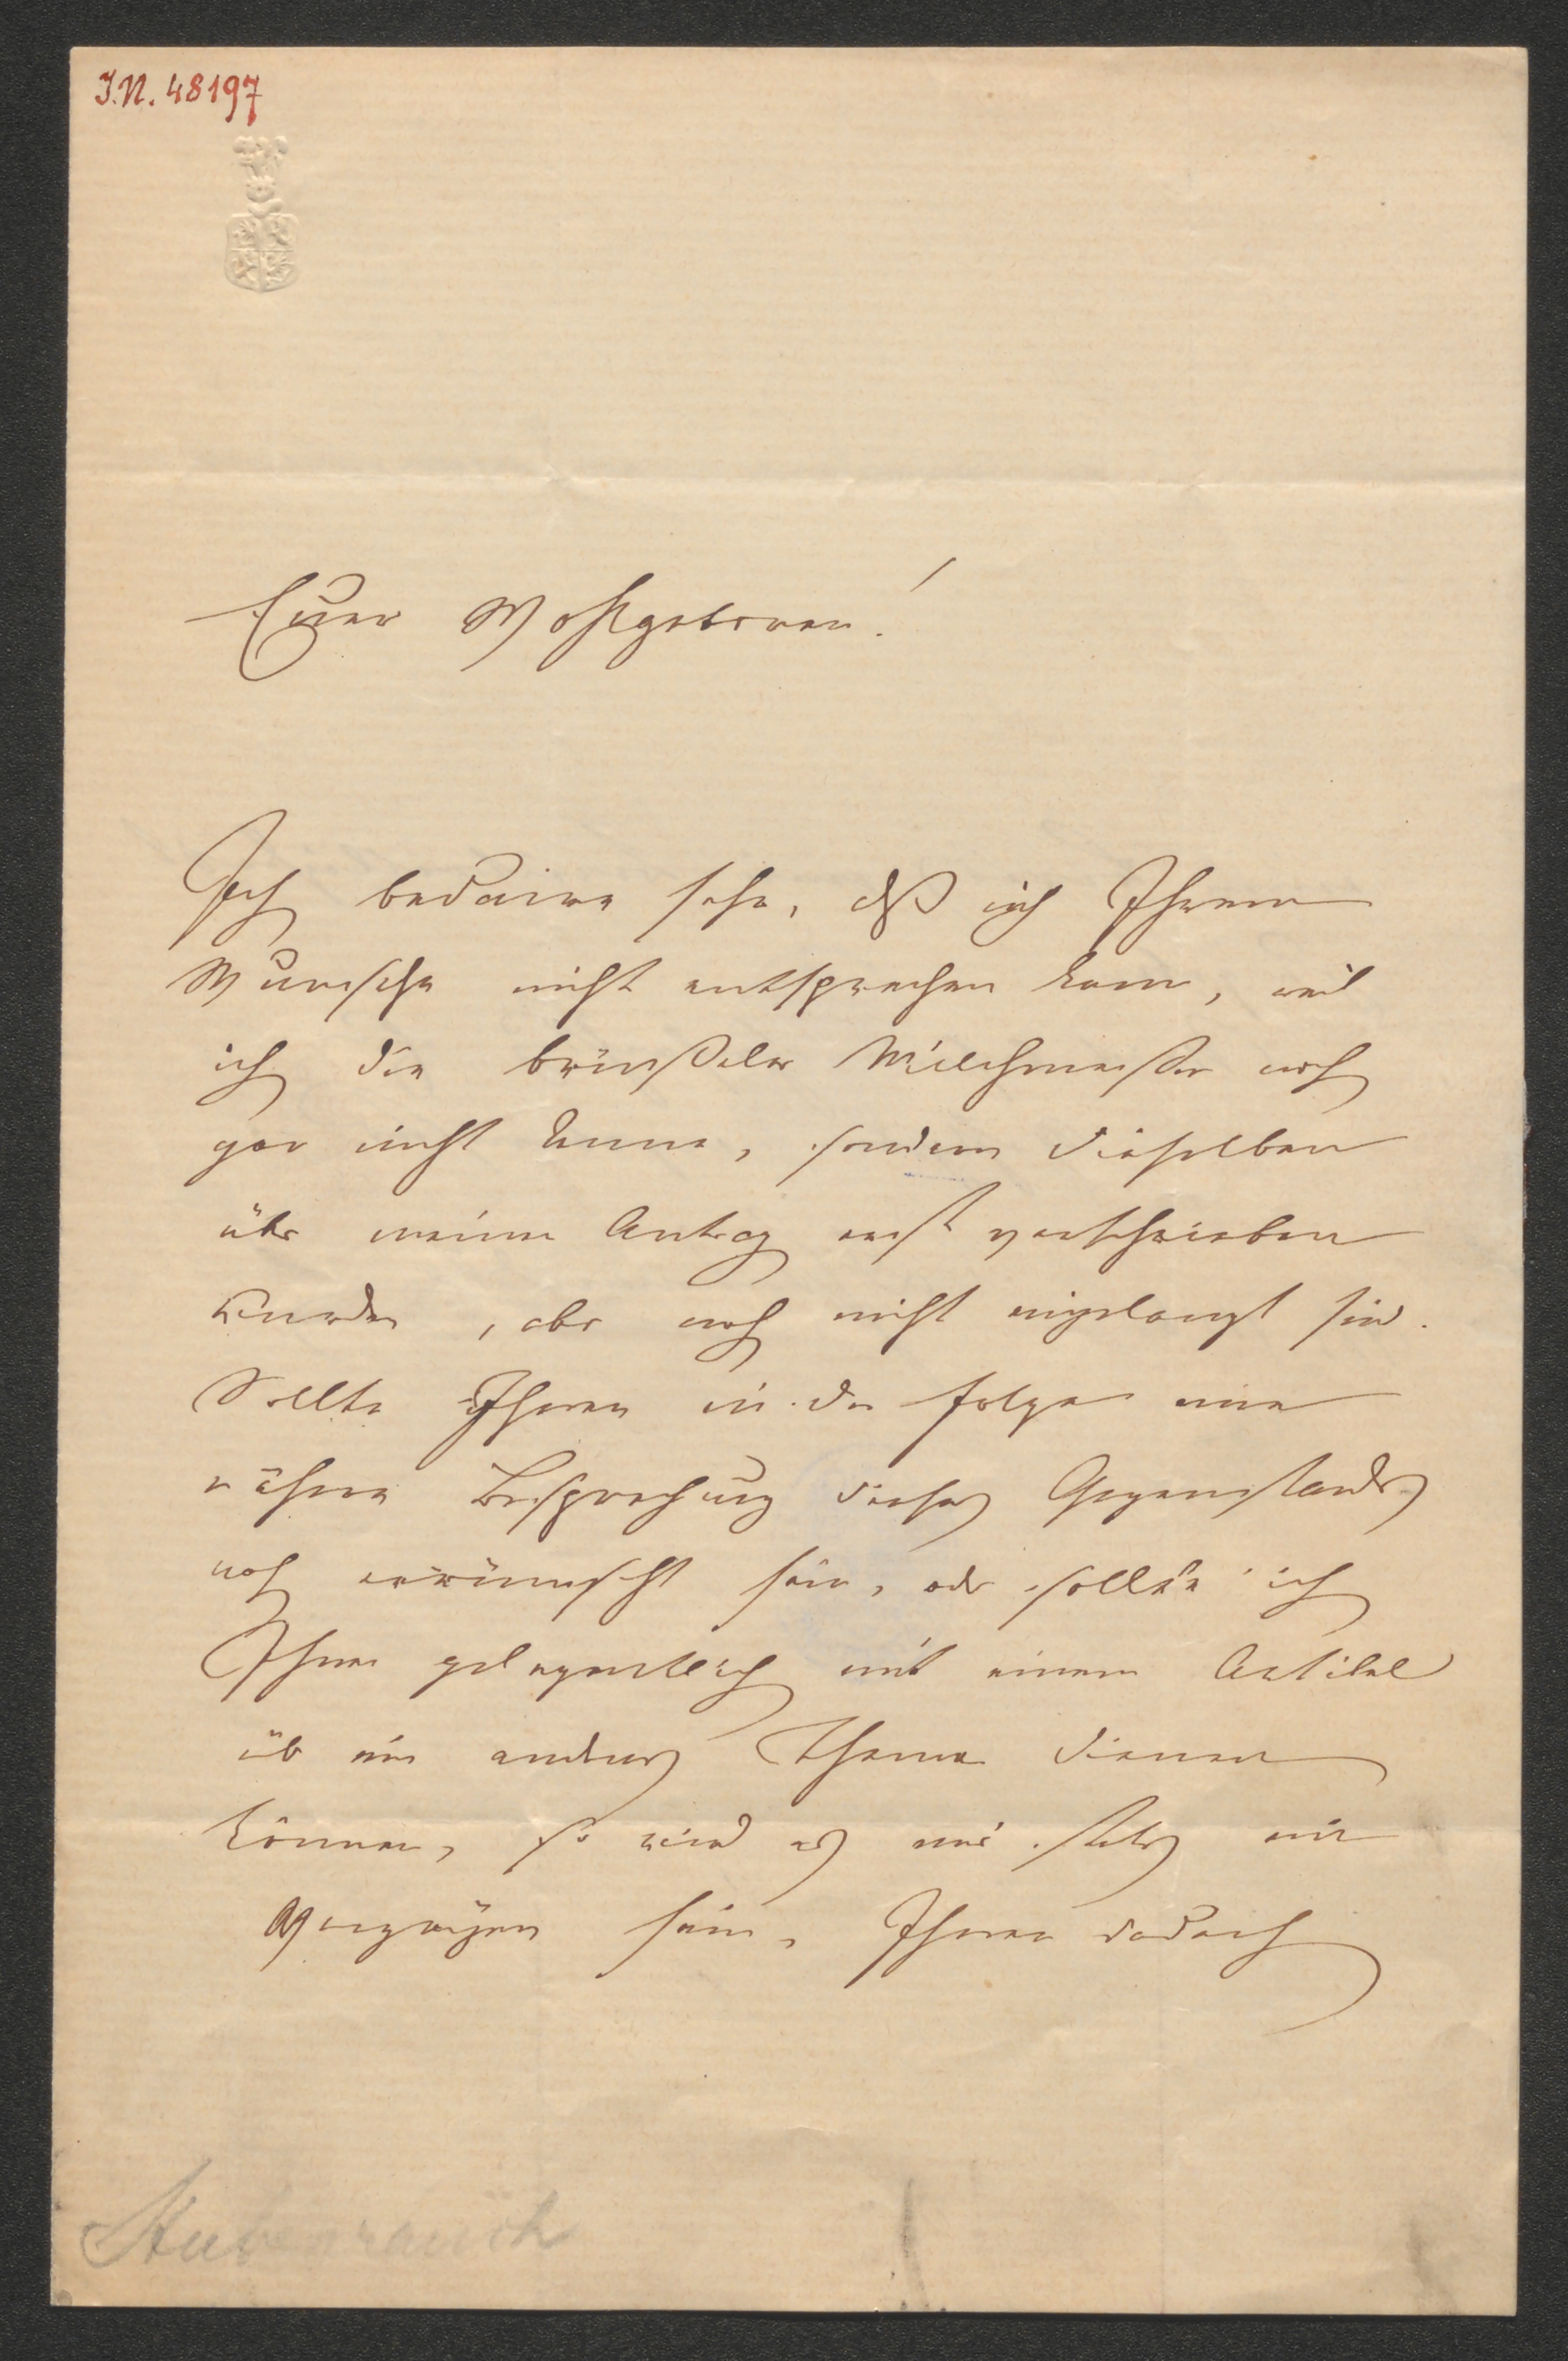 I.N. 48197
Euer Wohlgeboren!
Ich bedaure sehr, daß ich Ihrem
Wunsche nicht entsprechen kann, weil
ich die brüsseler Milchmesser noch
gar nicht kenne, sondern dieselben
über meinen Antrag erst verschrieben
wurden, aber noch nicht eingelangt sind.
Sollte Ihnen in der Folge eine
nähere Besprechung dieses Gegenstandes
noch erwünscht sein, oder sollte ich
Ihnen gelegentlich mit einem Artikel
über ein anderes Thema dienen
können, so wird es mir stets ein
Vergnügen sein, Ihnen dadurch
Stubenrauch